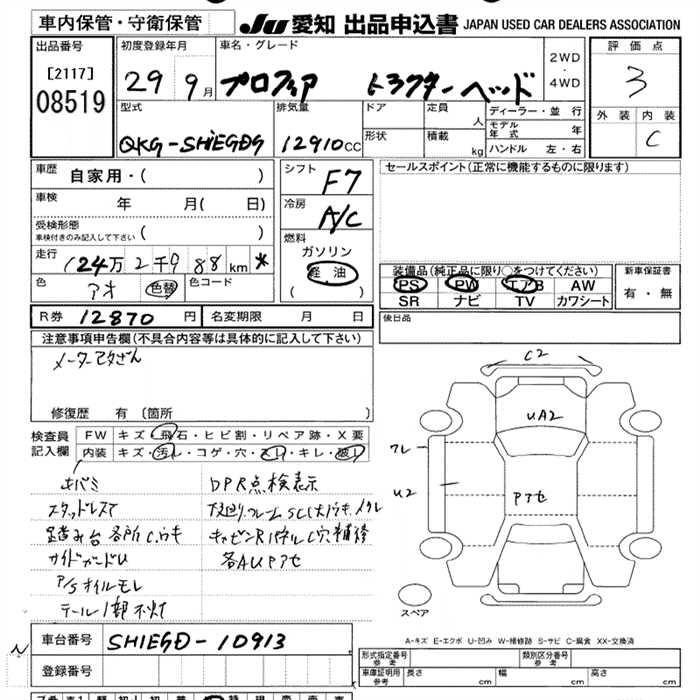 車内保管・守衛保管
JU 愛知 出品申込書 JAPAN USED CAR DEALERS ASSOCIATION
出品番号
[2117]
08519
初度登録年月
29 9月
車名・グレード
プロフィア トラクターヘッド
2WD
・
4WD
評価点
3
型式
QKG-SH1EGDG
排気量
12910cc
ドア
形状
定員
人
積載
kg
ディーラー・並行
モデル年式 年
ハンドル 左・右
外装 内装
C
車歴
自家用・( )
車検
年 月( 日)
受検形態
車検付きのみ記入して下さい ( )
走行
124万2千988km *
色
アオ
色替
色コード
シフト
F7
冷房
A/C
燃料
ガソリン
軽油
( )
セールスポイント(正常に機能するものに限ります)
装備品(純正品に限り○をつけてください)
PS PW エアB AW
SR ナビ TV カワシート
新車保証書
有・無
後日品
R券 12870円
名変期限 月 日
注意事項申告欄(不具合内容等は具体的に記入して下さい)
修復歴 有 〔箇所
検査員
記入欄
FW キズ・飛石・ヒビ割・リペア跡・X要
内装 キズ・汚レ・コゲ・穴・スレ・キレ・破レ
キバミ
スタッドレス
足踏み台各所C.ウキ
サイドガードU
P/Sオイルモレ
テール1部不灯
DPR点検表示
キャビンRパネルC穴補修
各AUアセ
C2
UA2
アセ
U2
スペア
A-キズ E-エクボ U-凹み W-補修跡 S-サビ C-腐食 XX-交換済
車台番号
SH1EGD-10913
登録番号
形式指定番号
参考
類別区分番号
参考
車庫証明用
参考
長さ cm
幅 cm
高さ cm